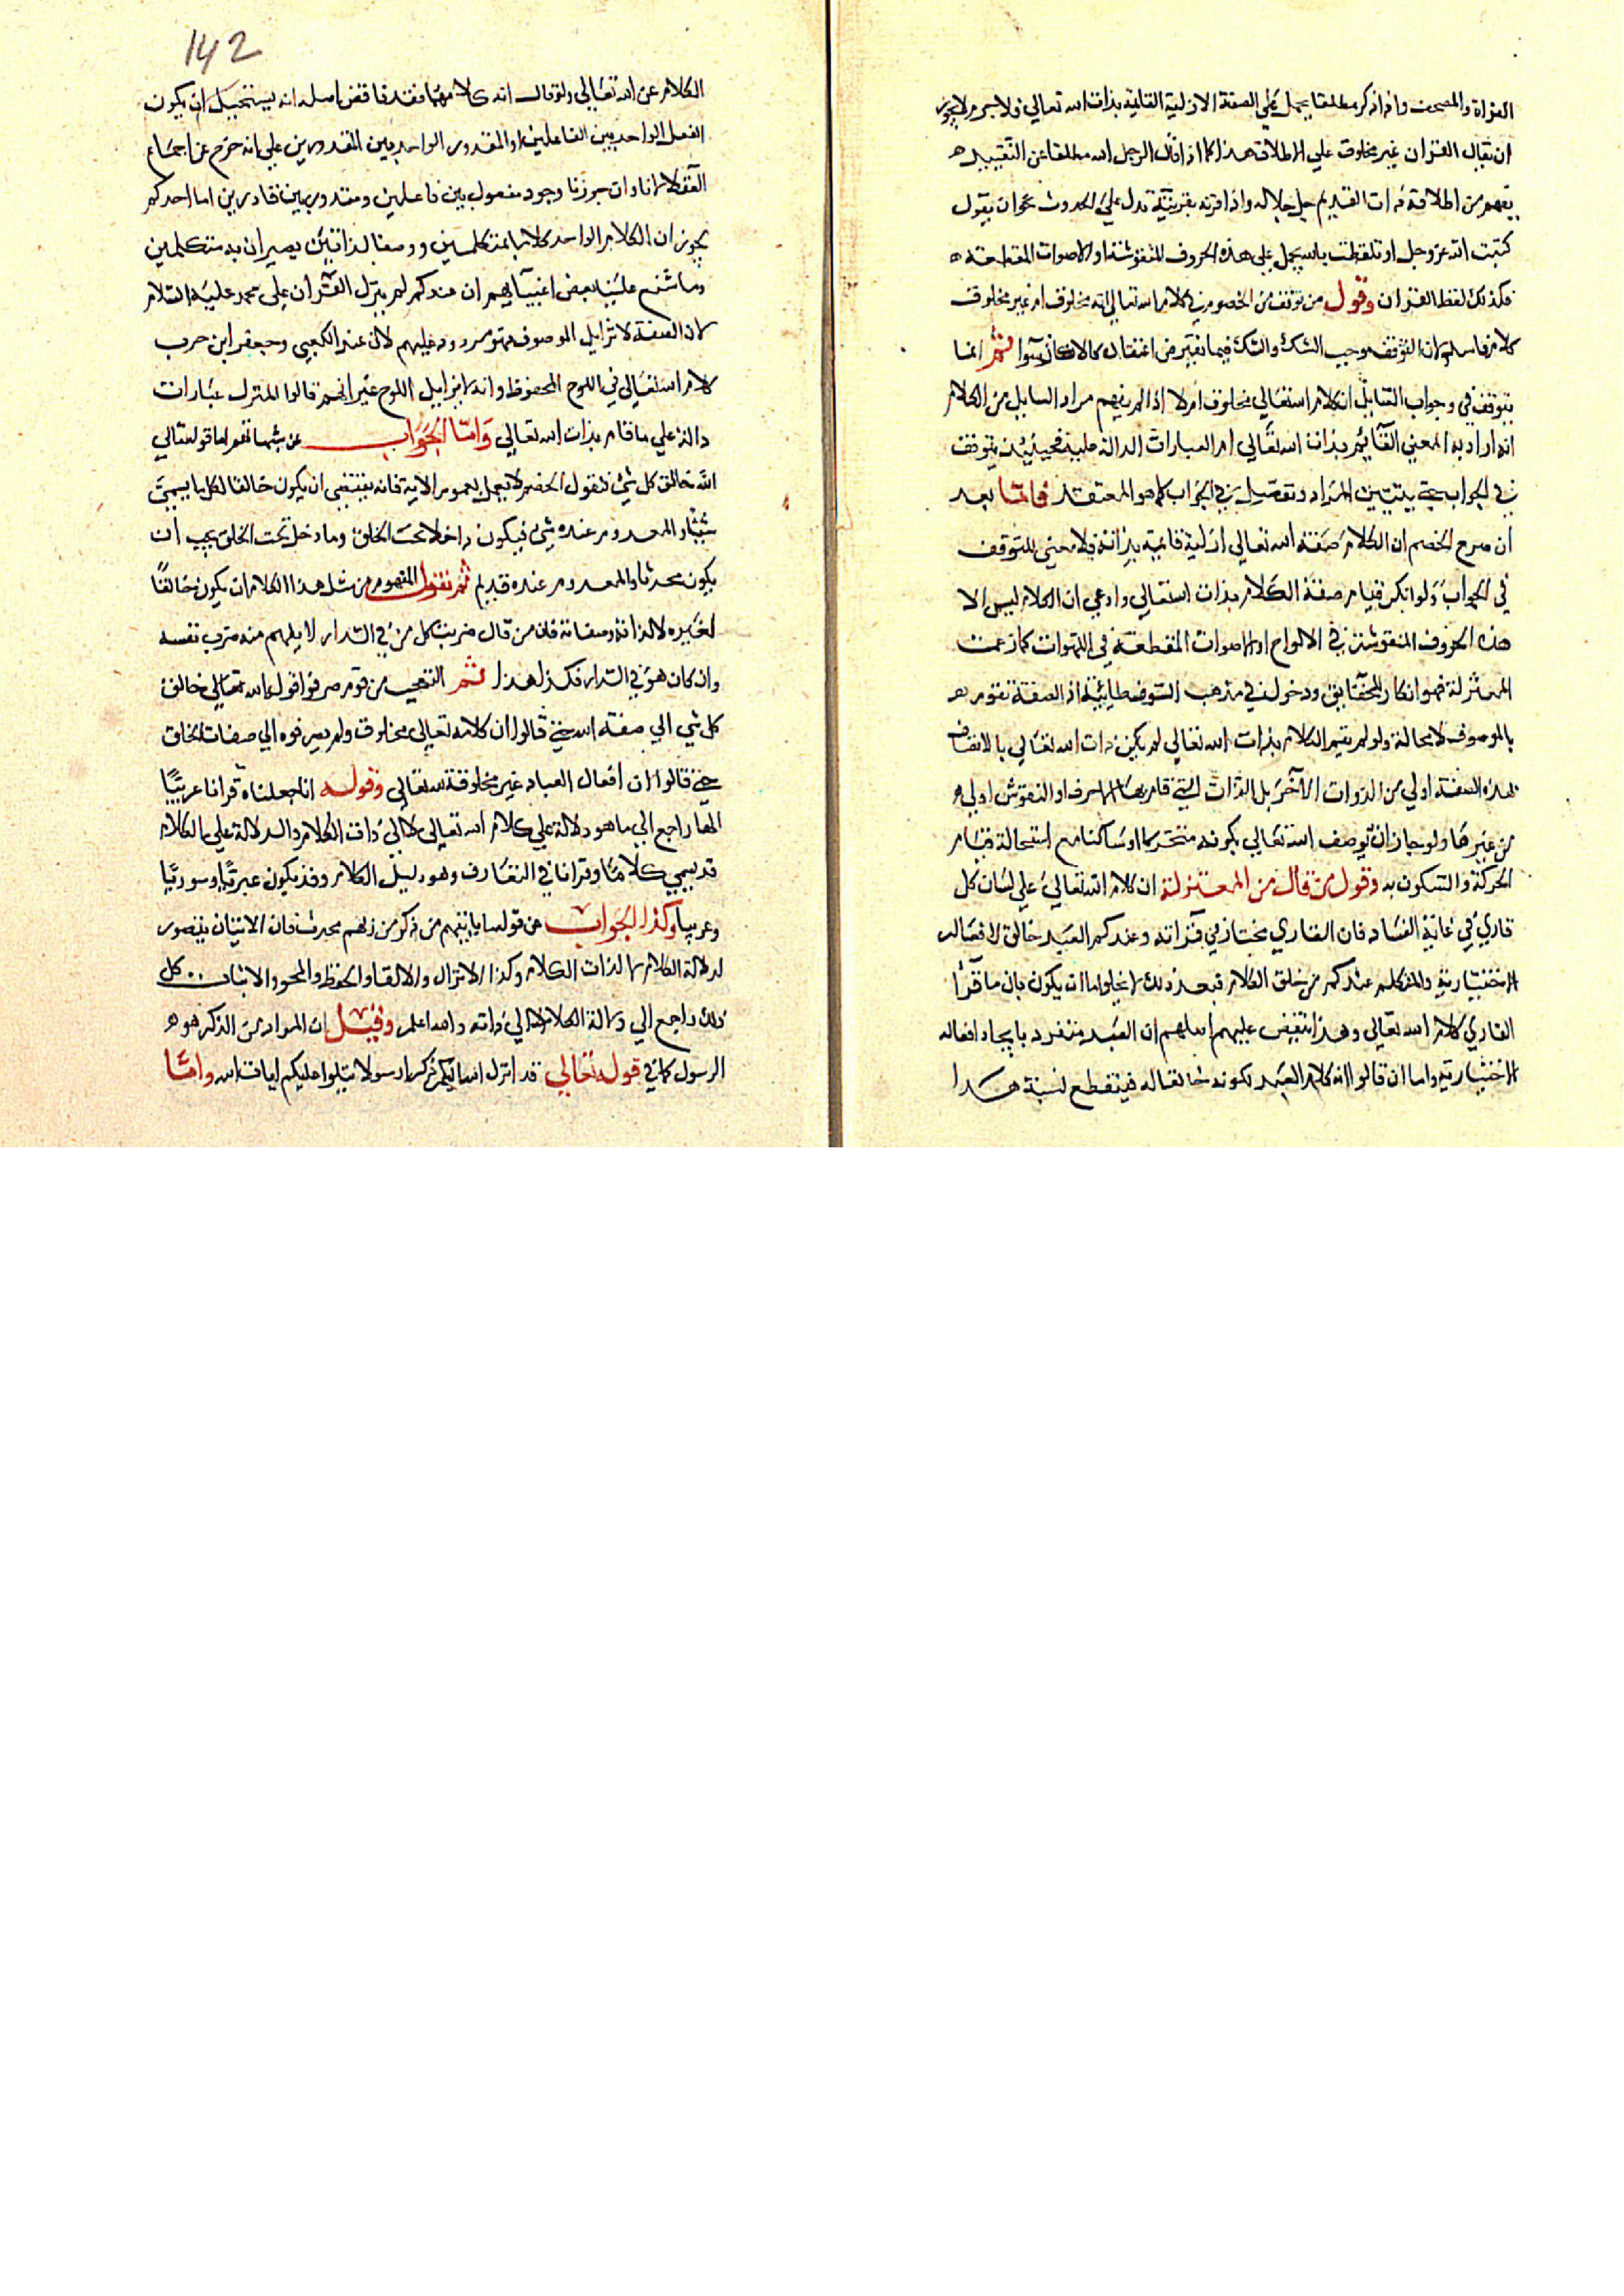 القراة والمصحف واذا ذكر مطلقا يحمل علي الصفة الازلية القايمة بذات الله تعالي فلا جرم لا يجوز
ان يقال القران غير مخلوق علي الاطلاق هذا كما اذا قال الرجل الله مطلقا عن التقييد
يفهم من اطلاقه ذات القديم جل جلاله واذا قرنه بقرينة تدل علي الحدوث نحو ان يقول
كتبت الله عز وجل او تلفظت بالله يحمل علي هذه الحروف المنقوشة او الاصوات المقطعة
فكذلك لفظ القران وقول من توقف من الخصوم في كلام الله تعالي انه مخلوق ام غير مخلوق
كلام فاسد لان التوقف يوجب الشك والشك فيما يفترض اعتقاده كالانكار سوا ثم انما
يتوقف في وجواب السايل ان كلام الله تعالي مخلوق ام لا اذا لم يفهم مراد السايل من الكلام
انه اراد به المعني القآيم بذات الله تعالي ام العبارات الدالة عليه فحينيذ يتوقف
في الجواب حتي يتبين المراد وتفصيل في الجواب كما هو المعتقد فاما بعد
ان صرح الخصم ان الكلام صفة الله تعالي ازلية قايمة بذاته فلا معني للتوقف
في الجواب ولو انكر قيام صفة الكلام بذات الله تعالي وادعي ان الكلام ليس الا
هذه الحروف المنقوشة في الالواح او الاصوات المقطعة في اللهوات كما زعمت
المعتزلة فهو انكار الحقايق ودخول في مذهب السوفسطايية اذ الصفة تقوم
بالموصوف لا محالة ولو لم يقم الكلام بذات الله تعالي لم يكن ذات الله تعالي بالاتصاف
بهذه الصفة اولي من الذوات الاخر بل الذات التي قام بها الاحرف او النقوش اولي
من غيرها ولو جاز ان يوصف الله تعالي بكونه متحركا او ساكنا مع استحالة قيام
الحركة والسكون به وقول من قال من المعتزلة ان كلام الله تعالي علي لسان كل
قاري في غاية الفساد فان القاري مختار في قرآته وعندكم العبد خالق لافعاله
الاختيارية والمتكلم عندكم من خلق الكلام فبعد ذلك لا يخلوا اما ان يكون بان ما قرأ
القاري كلام الله تعالي وهذا نقيض عليهم اصلهم ان العبد منفرد بايجاد افعاله
الاختيارية واما ان قالوا انه كلام العبد لكونه خالقا له فينقطع نسبة هذا
142
الكلام عن الله تعالي ولو قال انه كلامهما فقد ناقض اصله انه يستحيل ان يكون
الفعل الواحد بين الفاعلين او المقدور الواحد بين المقدورين علي انه خرم عن اجماع
العقلا لانا وان جوزنا وجود مفعول بين فاعلين ومقدور بين قادرين اما احدكم
يجوز ان الكلام الواحد كلاما لمتكلمين ووصفا لذاتين يصيران به متكلمين
وما شنع علينا بعض اغبيآيهم ان عندكم لم ينزل القران علي محمد عليه السلام
لان الصفة لا تزايل الموصوف فهو مردود عليهم لان عند الكعبي وجعفر ابن حرب
كلام الله تعالي في اللوح المحفوظ وانه لا يزايل اللوح غير انهم قالوا المنزل عبارات
دالة علي ما قام بذات الله تعالي وامّا الجواب عن شبهاتهم اما قوله تعالي
الله خالق كل شي فنقول الخصم لا يعمل بعموم الاية فانه يقتضي ان يكون خالقا لكل ما يسمي
شيئا والمعدوم عنده شي فيكون داخلا تحت الخلق وما دخل تحت الخلق يجب ان
يكون محدثا والمعدوم عنده قديم ثم نقول المفهوم من مثل هذا الكلام ان يكون خالقا
لغيره لا لذاته وصفاته فان من قال ضربت كل من في الدار لا يفهم منه ضرب نفسه
وان كان هو في الدار فكذا هذا ثم التعجب من قوم صرفوا قوله الله تعالي خالق
كل شي الي صفة الله حتي قالوا ان كلامه تعالي مخلوق ولم يصرفوه الي صفات الخلق
حتي قالوا ان افعال العباد غير مخلوقة لله تعالي وقوله انا جعلناه قرانا عربيا
الها راجع الي ما هو دلالة علي كلام الله تعالي لا الي ذات الكلام والدلالة علي الكلام
قد يسمي كلاما وقرانا في التعارف وهو دليل الكلام وقد يكون عبريا وسوريا
وعربيا وكذا الجواب عن قوله ما ياتيهم من ذكر من ربهم محدث فان الاتيان يتصور
لدلالة الكلام لا لذات الكلام وكذا الانزال والالقا والحفظ والمحو والاثبات كل
ذلك راجع الي دلالة الكلام لا الي ذاته والله اعلم وقيل ان المراد من الذكر هو
الرسول كما في قوله تعالي قد انزل الله اليكم ذكرا رسولا يتلوا عليكم ايات الله وامّا